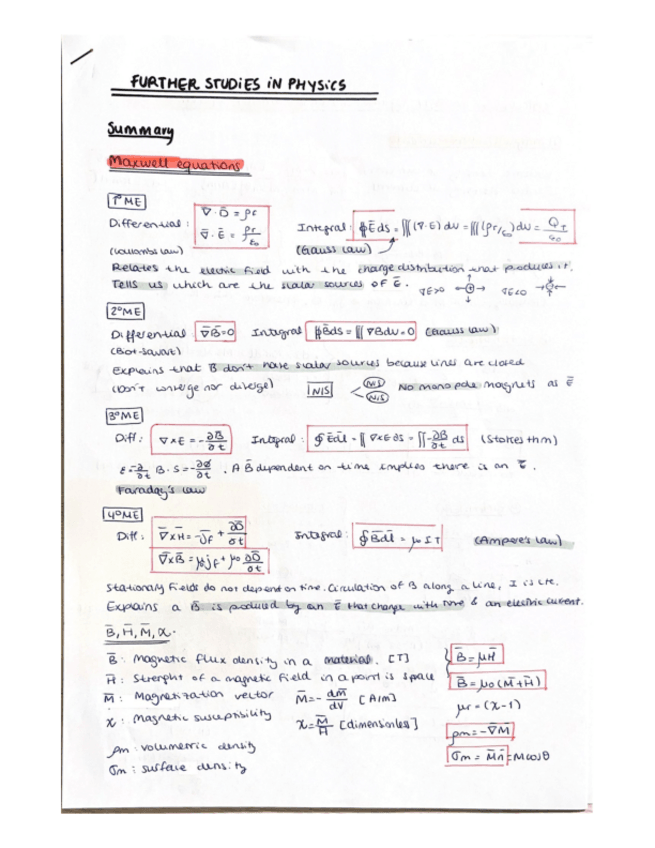 FURTHER STUDIES IN PHYSICS
Summary
Maxwell equations
1º ME
Differential: ∇·D̄ = ρf
∇·Ē = ρf/ε₀
Integral: ∯Ēds = ∭(∇·E)dv = ∭(ρf/ε₀)dv = Q_T/ε₀
(Coulombs law) (Gauss law)
Relates the electric field with the charge distribution that produces it.
Tells us which are the scalar sources of Ē. ∇E>0 ∇E<0
2º ME
Differential ∇B̄=0 Integral ∯B̄ds = ∭∇Bdv=0 (Gauss law)
(Biot-Savart)
Explains that B̄ don't have scalar sources because lines are closed
(Don't converge nor diverge) N|S N|S N|S No mono pole magnets as Ē
3º ME
Diff: ∇×E = -∂B̄/∂t Integral: ∮Ēdl = ∬∇×E ds = ∬-∂B̄/∂t ds (Stokes thm)
ε=-∂/∂t B·S = -∂ø/∂t. A B̄ dependent on time implies there is an Ē.
Faraday's law
4º ME
Diff: ∇̄×H̄ = J̄f + ∂D̄/∂t
∇̄×B̄ = μ₀jf + μ₀ ∂D̄/∂t
Integral: ∮B̄dl = μ₀IT (Ampere's law)
Stationary fields do not depend on time. Circulation of B along a line, I is cte.
Explains a B̄ is produced by an Ē that change with time & an electric current.
B̄, H̄, M̄, χ.
B̄: Magnetic flux density in a material. [T] B̄=μH̄
H̄: Strenght of a magnetic field in a point is space B̄=μ₀(M̄+H̄)
M̄: Magnetization vector M̄=-dm̄/dV [A/m] μr=(χ-1)
χ: Magnetic susceptibility χ=M̄/H̄ [dimensionles] ρm=-∇̄M̄
ρm: volumetric density
σm: surface density σm = M̄n̄=Mcosθ